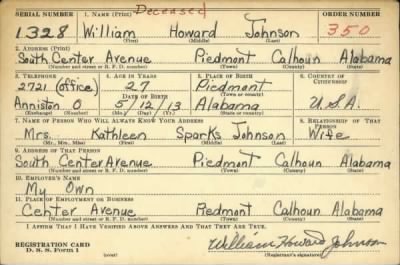 Deceased
SERIAL NUMBER 1. NAME (Print) ORDER NUMBER
1328 William Howard Johnson 350
(First) (Middle) (Last)
2. ADDRESS (Print)
South Center Avenue Piedmont Calhoun Alabama
(Number and street or R. F. D. number) (Town) (County) (State)
3. TELEPHONE 4. AGE IN YEARS 5. PLACE OF BIRTH 6. COUNTRY OF CITIZENSHIP
2721 (office) 27 Piedmont
DATE OF BIRTH (Town or county)
Anniston O 5/12/13 Alabama U.S.A.
(Exchange) (Number) (Mo.) (Day) (Yr.) (State or country)
7. NAME OF PERSON WHO WILL ALWAYS KNOW YOUR ADDRESS 8. RELATIONSHIP OF THAT PERSON
Mrs. Kathleen Sparks Johnson Wife
(Mr., Mrs., Miss) (First) (Middle) (Last)
9. ADDRESS OF THAT PERSON
South Center Avenue Piedmont Calhoun Alabama
(Number and street or R. F. D. number) (Town) (County) (State)
10. EMPLOYER'S NAME
My Own
11. PLACE OF EMPLOYMENT OR BUSINESS
Center Avenue Piedmont Calhoun Alabama
(Number and street or R. F. D. number) (Town) (County) (State)
I AFFIRM THAT I HAVE VERIFIED ABOVE ANSWERS AND THAT THEY ARE TRUE.
REGISTRATION CARD
D. S. S. Form 1 William Howard Johnson
(Registrant's signature)